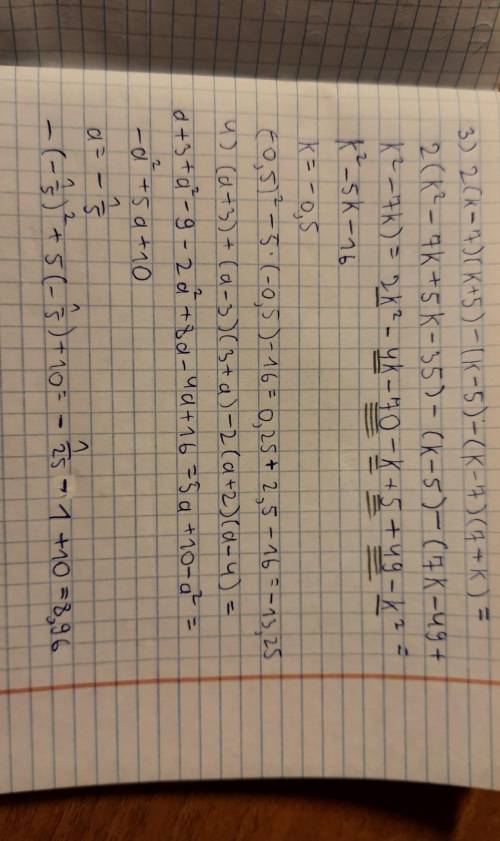 3) 2(k-7)(k+5)-(k-5)-(k-7)(7+k)=
2(k²-7k+5k-35)-(k-5)-(7k-49+
k²-7k)=2k²-4k-70-k+5+49-k²=
k²-5k-16
k=-0,5
(-0,5)²-5·(-0,5)-16=0,25+2,5-16=-13,25
4) (a+3)+(a-3)(3+a)-2(a+2)(a-4)=
a+3+a²-9-2a²+8a-4a+16=5a+10-a²=
-a²+5a+10
a=-1/5
-(-1/5)²+5(-1/5)+10=-1/25-1+10=8,96